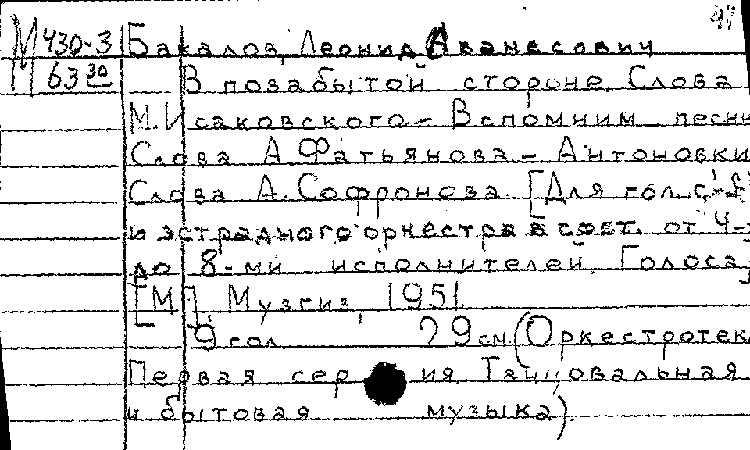 47
М 430-3 Бакалов, Леонид Аванесович
М 63 30 В позабытой стороне. Слова
М. Исаковского – Вспомним песни
Слова А. Фатьянова – Антоновки
Слова А. Софронова. [Для голоса с
и эстрадного оркестра в сост. от 4-
до 8-ми исполнителей. Голоса]
[М.], Музгиз, 1951
9 гол 29 см (Оркестротек
Первая сер ия. Танцовальная
и бытовая музыка)